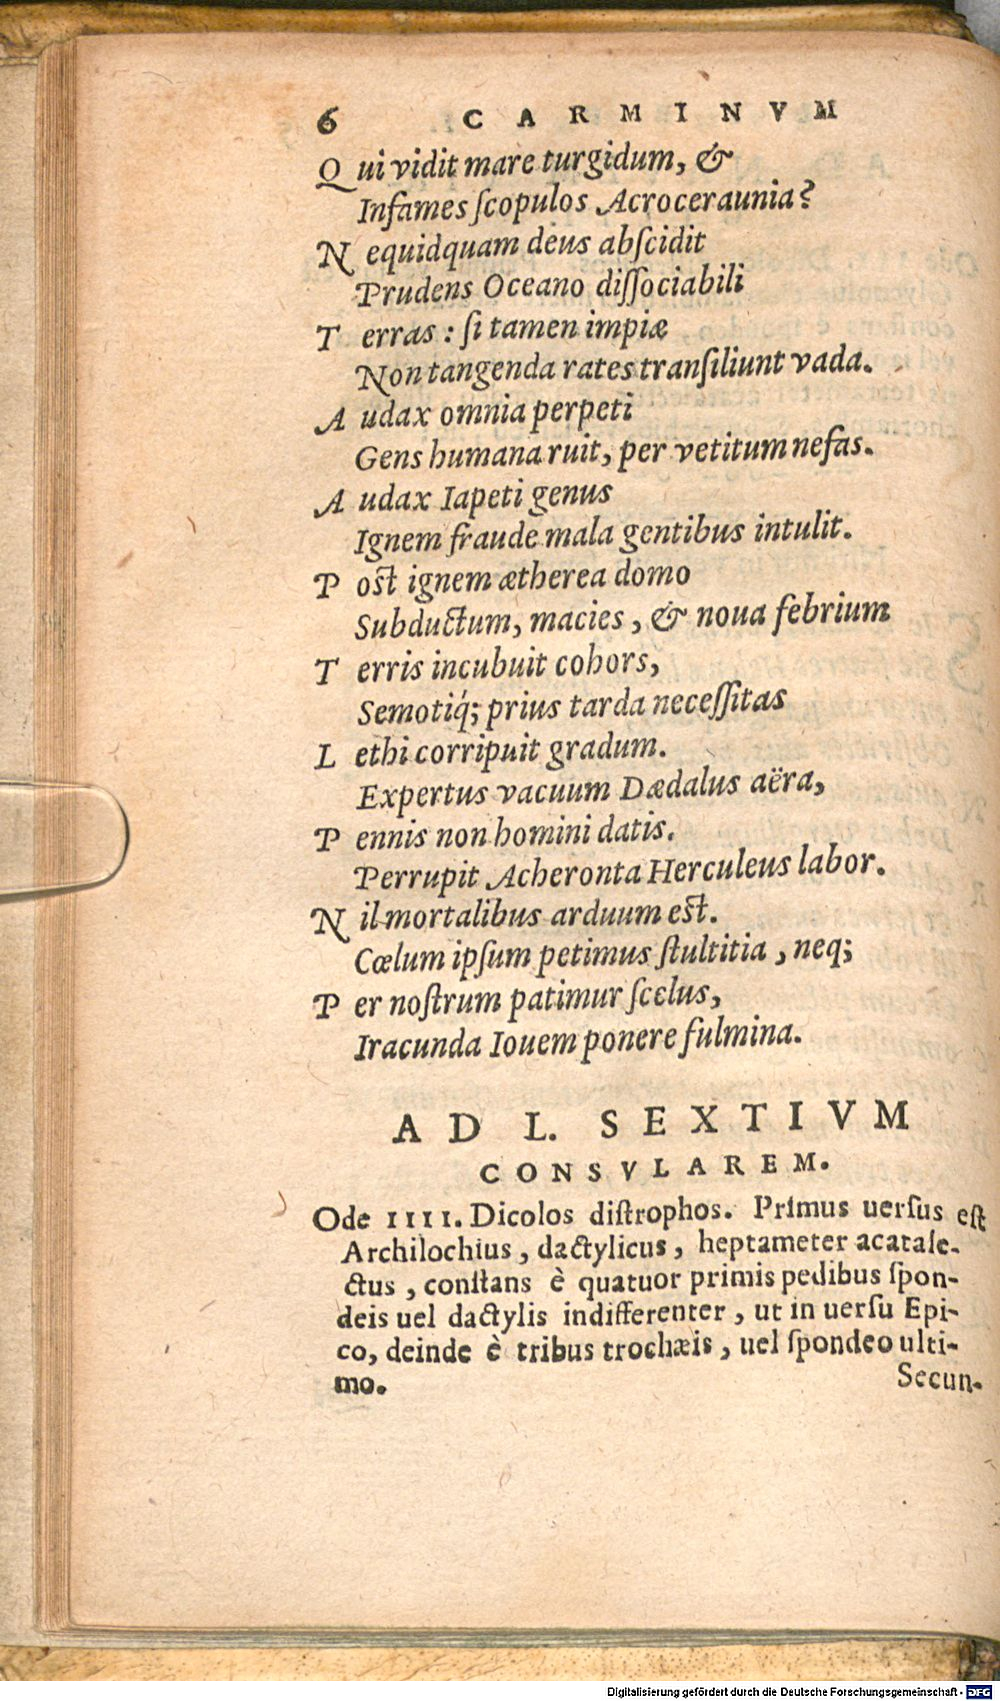 6 CARMINVM
Qui vidit mare turgidum, &
Infames ſcopulos Acroceraunia?
Nequidquam deus abſcidit
Prudens Oceano diſſociabili
Terras: ſi tamen impiæ
Non tangenda rates tranſiliunt vada.
Audax omnia perpeti
Gens humana ruit, per vetitum nefas.
Audax Iapeti genus
Ignem fraude mala gentibus intulit.
Poſt ignem ætherea domo
Subductum, macies, & noua febrium
Terris incubuit cohors,
Semotiq́; prius tarda neceſſitas
Lethi corripuit gradum.
Expertus vacuum Dædalus aëra,
Pennis non homini datis.
Perrupit Acheronta Herculeus labor.
Nil mortalibus arduum eſt.
Cœlum ipſum petimus ſtultitia, neq;
Per noſtrum patimur ſcelus,
Iracunda Iouem ponere fulmina.
AD L. SEXTIVM
CONSVLAREM.
Ode IIII. Dicolos diſtrophos. Primus uerſus eſt
Archilochius, dactylicus, heptameter acatale-
ctus, conſtans è quatuor primis pedibus ſpon-
deis uel dactylis indifferenter, ut in uerſu Epi-
co, deinde è tribus trochæis, uel ſpondeo ulti-
mo.
Secun-
Digitalisierung gefördert durch die Deutsche Forschungsgemeinschaft - DFG